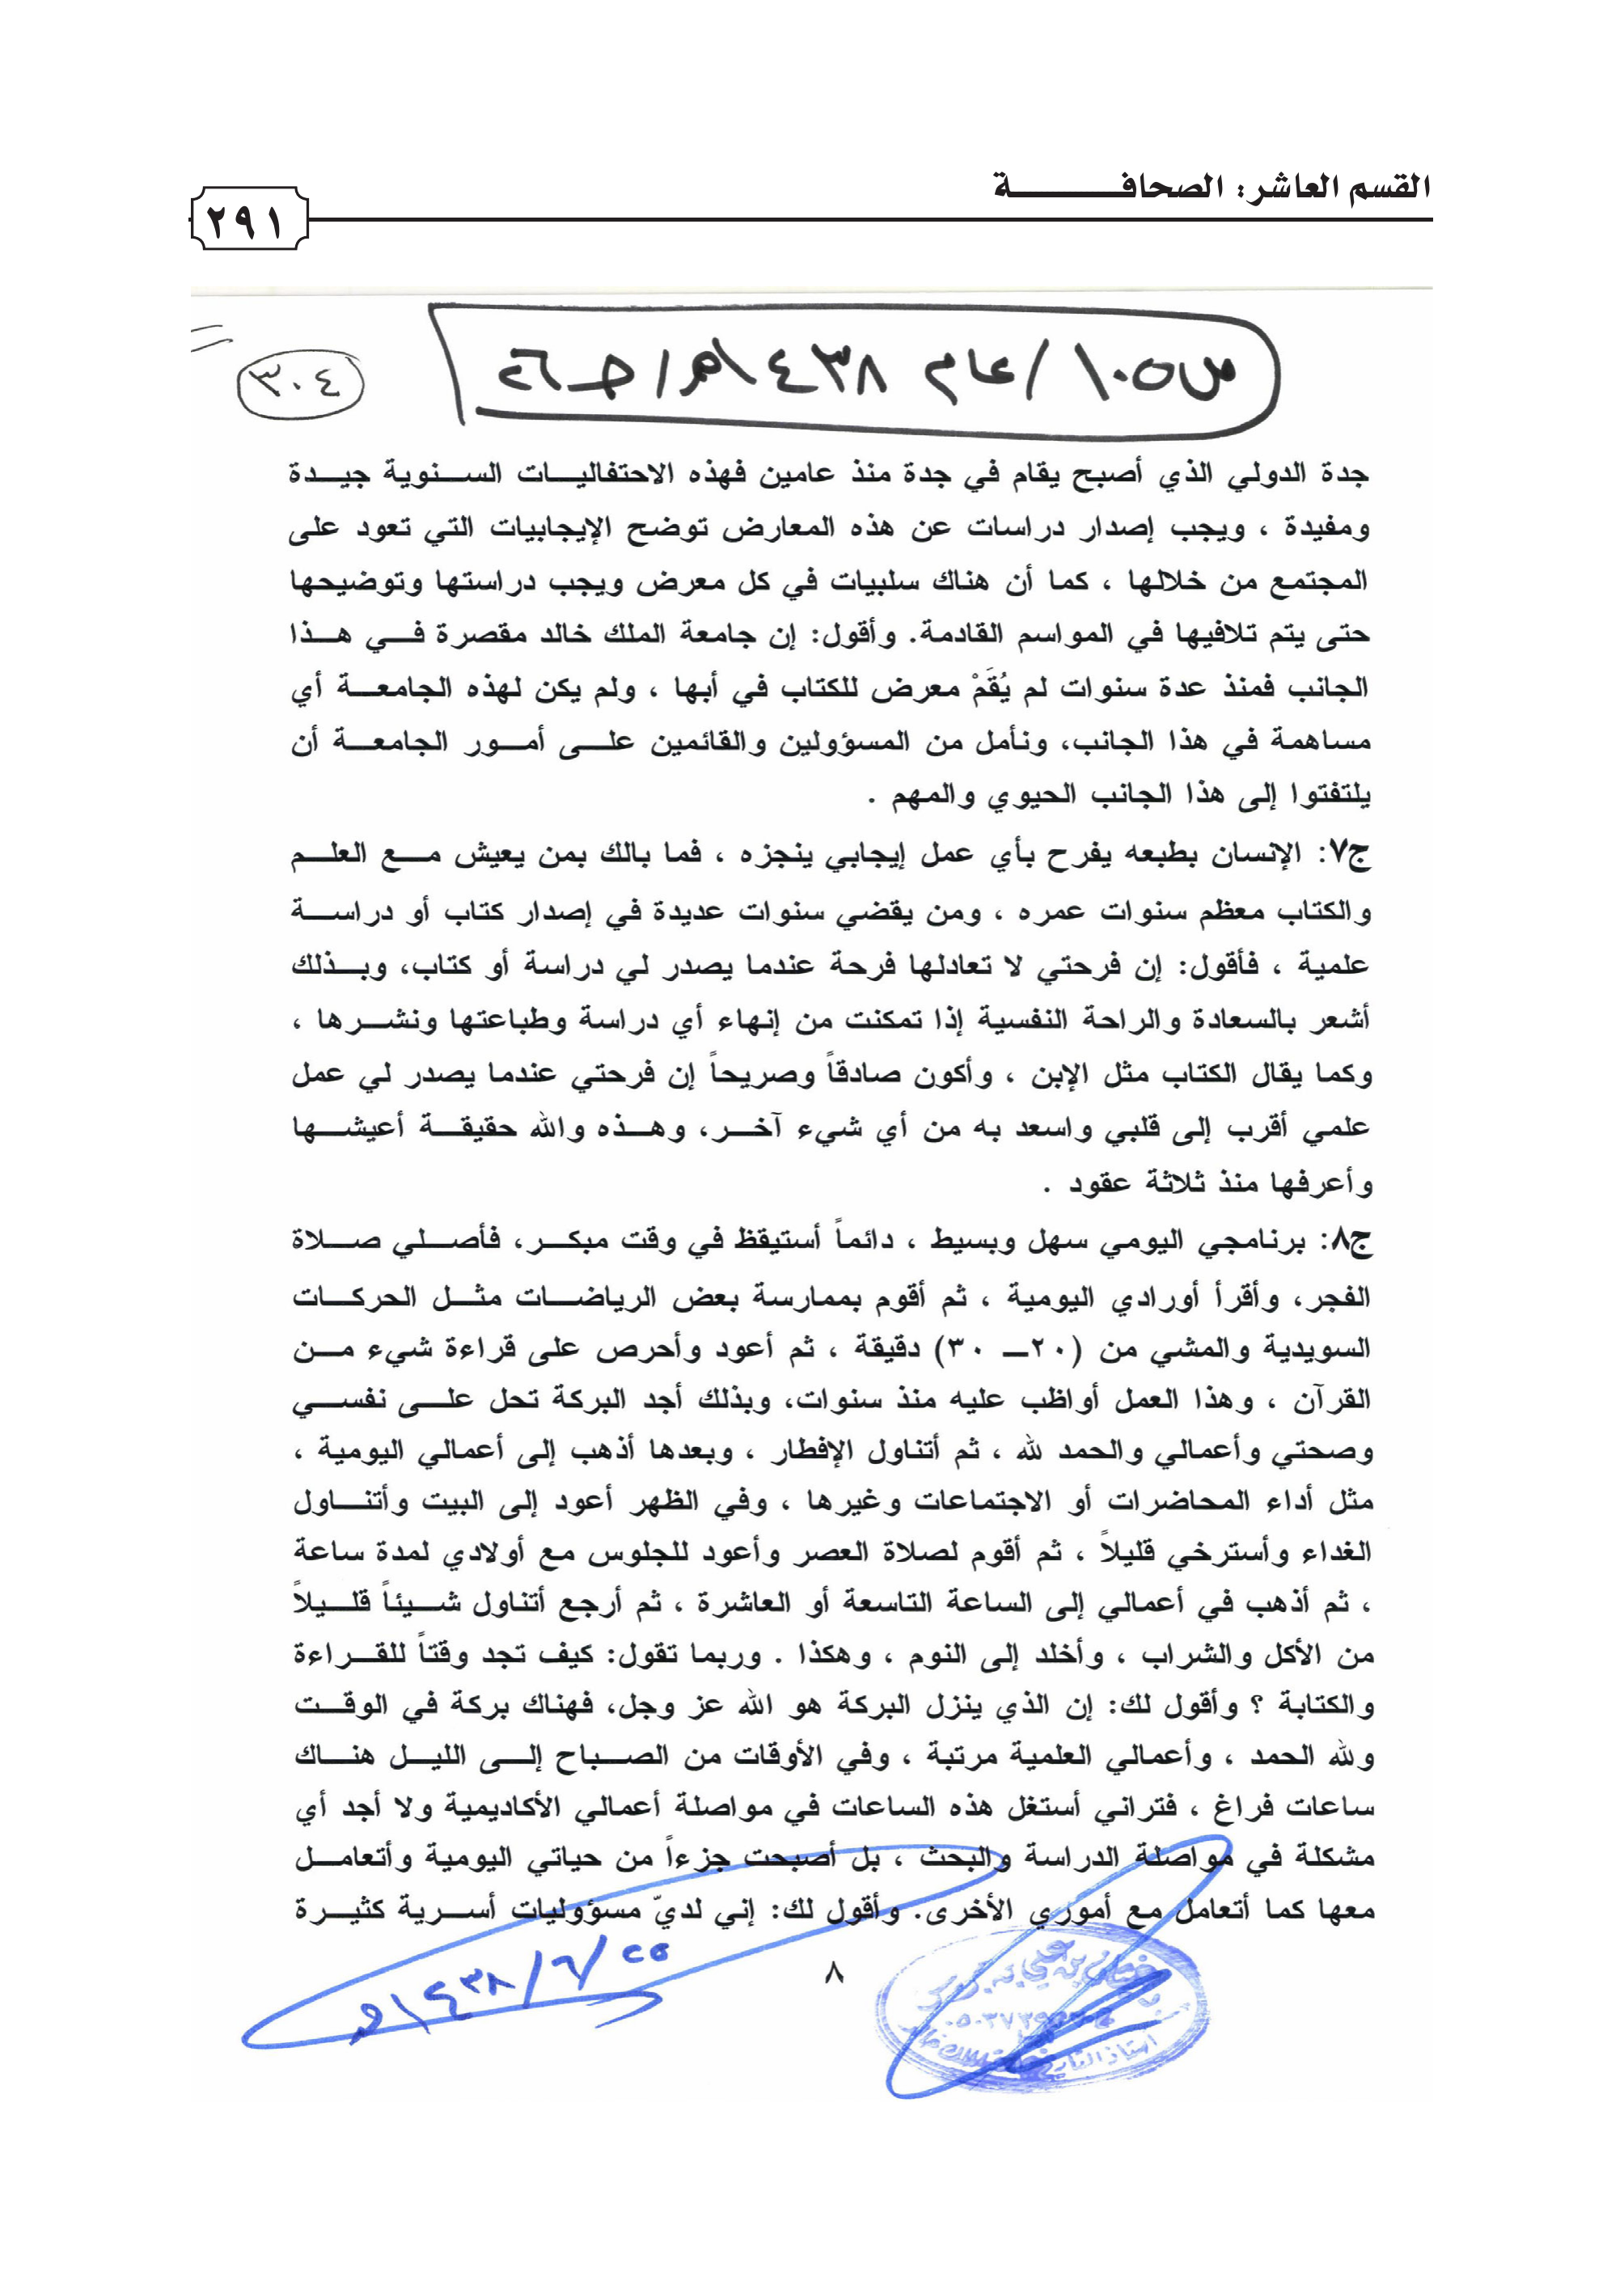 القسم العاشر: الصحافـــــــــــة
٢٩١
ص ١٠٥ / عام ١٤٣٨هـ / جـ ٢٦
٣٠٤
جدة الدولي الذي أصبح يقام في جدة منذ عامين فهذه الاحتفاليـــات الســـنوية جيـــدة
ومفيدة ، ويجب إصدار دراسات عن هذه المعارض توضح الإيجابيات التي تعود على
المجتمع من خلالها ، كما أن هناك سلبيات في كل معرض ويجب دراستها وتوضيحها
حتى يتم تلافيها في المواسم القادمة. وأقول: إن جامعة الملك خالد مقصرة فـــي هـــذا
الجانب فمنذ عدة سنوات لم يُقَمْ معرض للكتاب في أبها ، ولم يكن لهذه الجامعـــة أي
مساهمة في هذا الجانب، ونأمل من المسؤولين والقائمين علـــى أمـــور الجامعـــة أن
يلتفتوا إلى هذا الجانب الحيوي والمهم .
ج٧: الإنسان بطبعه يفرح بأي عمل إيجابي ينجزه ، فما بالك بمن يعيش مـــع العلـــم
والكتاب معظم سنوات عمره ، ومن يقضي سنوات عديدة في إصدار كتاب أو دراســـة
علمية ، فأقول: إن فرحتي لا تعادلها فرحة عندما يصدر لي دراسة أو كتاب، وبـــذلك
أشعر بالسعادة والراحة النفسية إذا تمكنت من إنهاء أي دراسة وطباعتها ونشـــرها ،
وكما يقال الكتاب مثل الإبن ، وأكون صادقاً وصريحاً إن فرحتي عندما يصدر لي عمل
علمي أقرب إلى قلبي واسعد به من أي شيء آخـــر، وهـــذه والله حقيقـــة أعيشـــها
وأعرفها منذ ثلاثة عقود .
ج٨: برنامجي اليومي سهل وبسيط ، دائماً أستيقظ في وقت مبكـــر، فأصـــلي صـــلاة
الفجر، وأقرأ أورادي اليومية ، ثم أقوم بممارسة بعض الرياضـــات مثـــل الحركـــات
السويدية والمشي من (٢٠ــ ٣٠) دقيقة ، ثم أعود وأحرص على قراءة شيء مـــن
القرآن ، وهذا العمل أواظب عليه منذ سنوات، وبذلك أجد البركة تحل علـــى نفســـي
وصحتي وأعمالي والحمد لله ، ثم أتناول الإفطار ، وبعدها أذهب إلى أعمالي اليومية ،
مثل أداء المحاضرات أو الاجتماعات وغيرها ، وفي الظهر أعود إلى البيت وأتنـــاول
الغداء وأسترخي قليلاً ، ثم أقوم لصلاة العصر وأعود للجلوس مع أولادي لمدة ساعة
، ثم أذهب في أعمالي إلى الساعة التاسعة أو العاشرة ، ثم أرجع أتناول شـــيئاً قلـــيلاً
من الأكل والشراب ، وأخلد إلى النوم ، وهكذا . وربما تقول: كيف تجد وقتاً للقـــراءة
والكتابة ؟ وأقول لك: إن الذي ينزل البركة هو الله عز وجل، فهناك بركة في الوقـــت
ولله الحمد ، وأعمالي العلمية مرتبة ، وفي الأوقات من الصـــباح إلـــى الليـــل هنـــاك
ساعات فراغ ، فتراني أستغل هذه الساعات في مواصلة أعمالي الأكاديمية ولا أجد أي
مشكلة في مواصلة الدراسة والبحث ، بل أصبحت جزءاً من حياتي اليومية وأتعامـــل
معها كما أتعامل مع أموري الأخرى. وأقول لك: إني لديّ مسؤوليات أســـرية كثيـــرة
٨
٢٥/٦/١٤٣٨هـ
أستاذ التاريخ